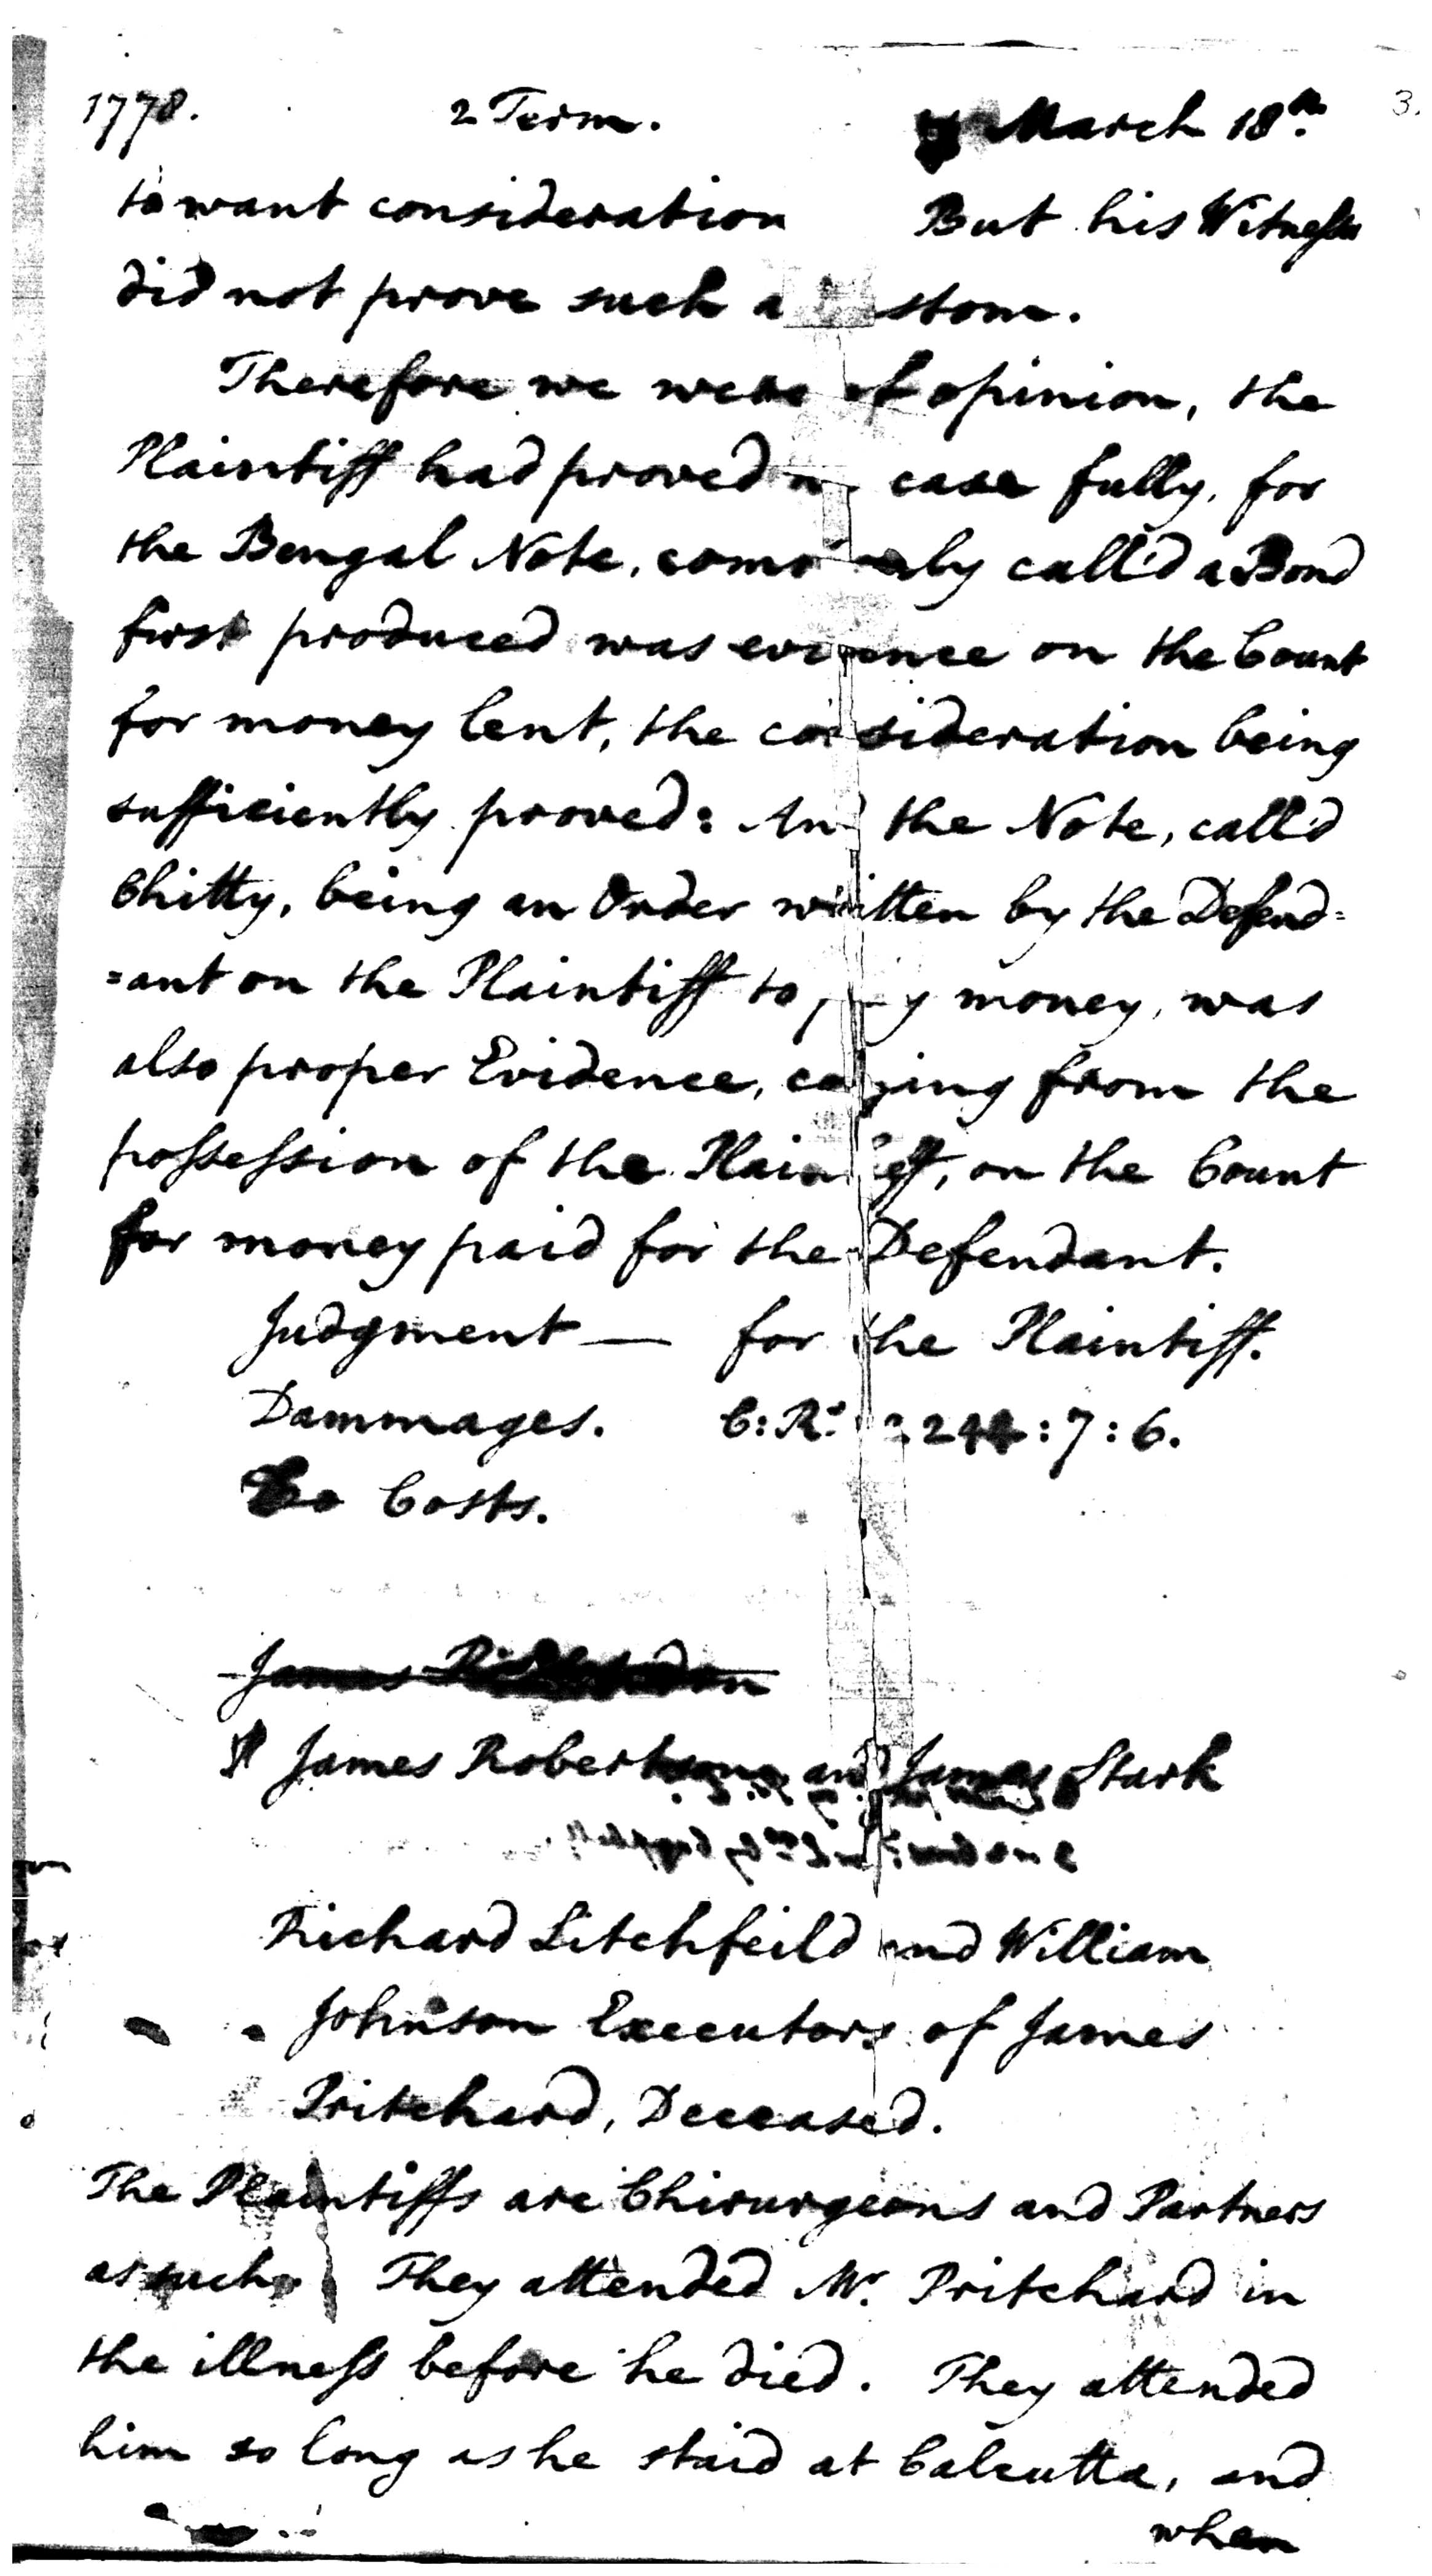 1778. 2 Term. March 18th. 3.
to want consideration But his Witness
did not prove such a stom.
Therefore we were of opinion, the
Plaintiff had proved case fully, for
the Bengal Note, commonly call'd a Bond
first produced was evidence on the Count
for money lent, the consideration being
sufficiently proved: And the Note, call'd
Chitty, being an Order written by the Defend=
=ant on the Plaintiff to pay money, was
also proper Evidence, coming from the
possession of the Plaintiff, on the Count
for money paid for the Defendant.
Judgment — for the Plaintiff.
Dammages. C: Rs. 2244:7:6.
Costs.
James
James Robertson and James Stark
Richard Litchfeild and William
Johnson Executors of James
Pritchard, Deceased.
The Plaintiffs are Chirurgeons and Partners
as such. They attended Mr. Pritchard in
the illness before he died. They attended
him so long as he staid at Calcutta, and
when